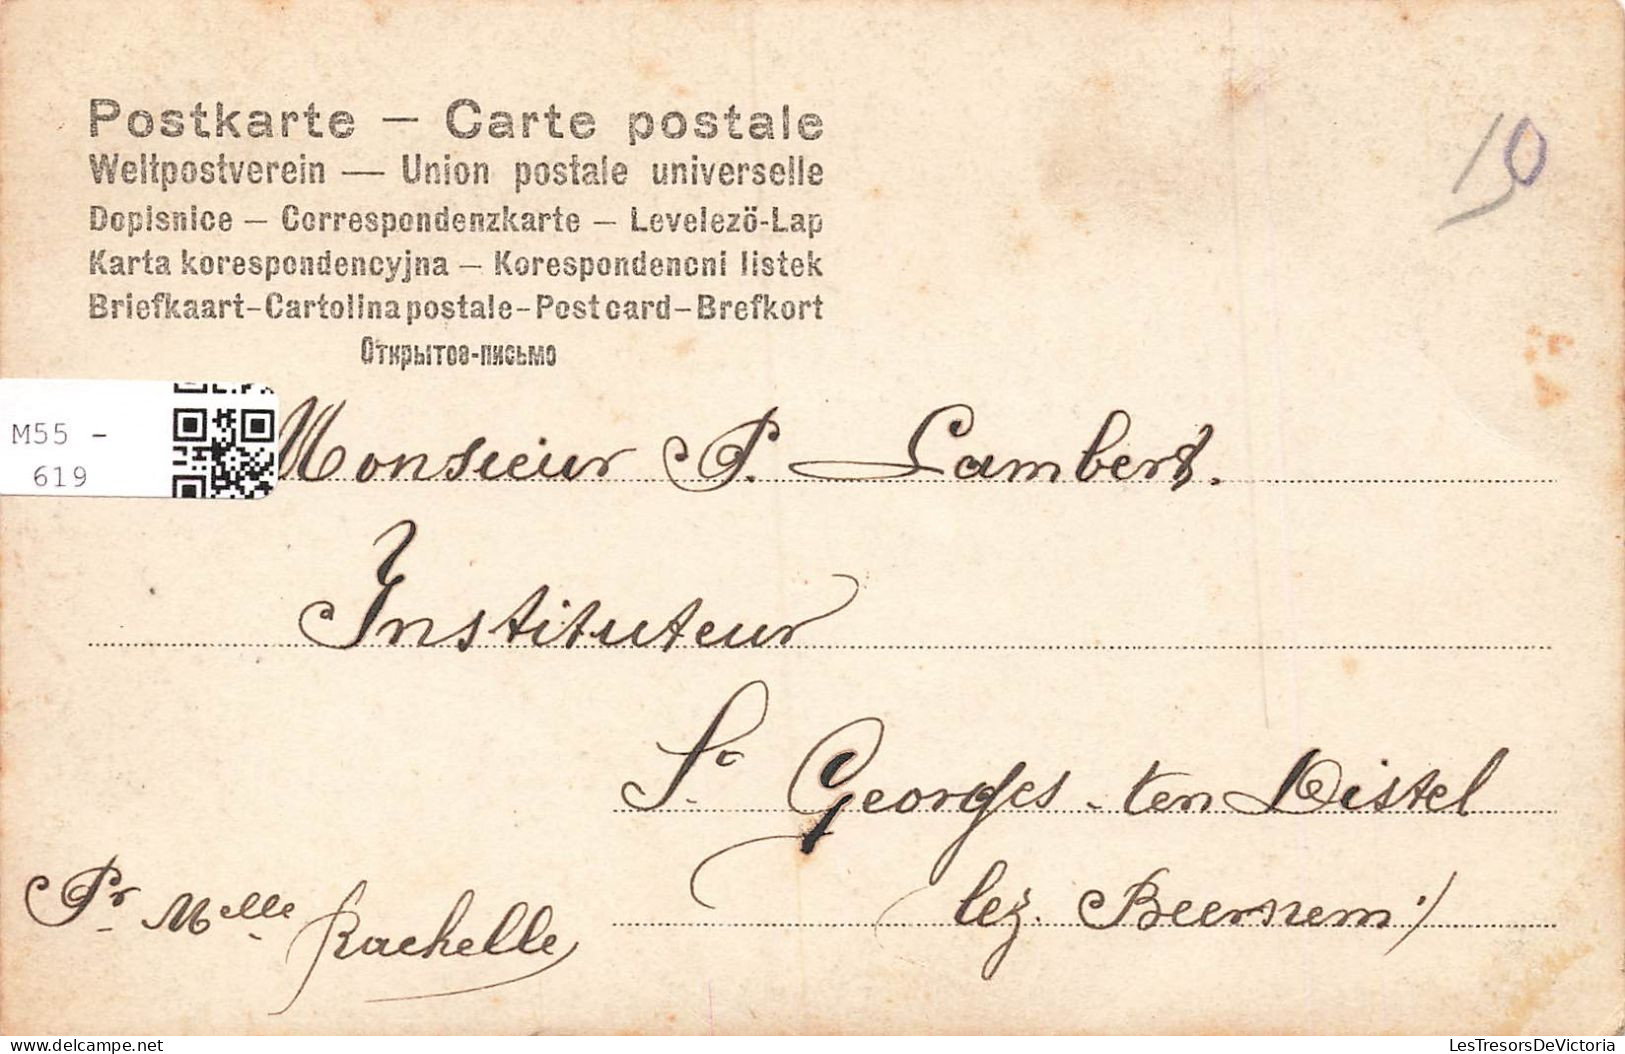 Postkarte — Carte postale
Weltpostverein — Union postale universelle
Dopisnice — Correspondenzkarte — Levelezö-Lap
Karta korespondencyjna — Korespondencni listek
Briefkaart-Cartolina postale-Postcard-Brefkort
Открытое-письмо
M55 -
619
Monsieur P. Lambert.
Instituteur
St. Georges-ten Distel
lez. Beernem
Pr Melle Rachelle
delcampe.net
LesTresorsDeVictoria